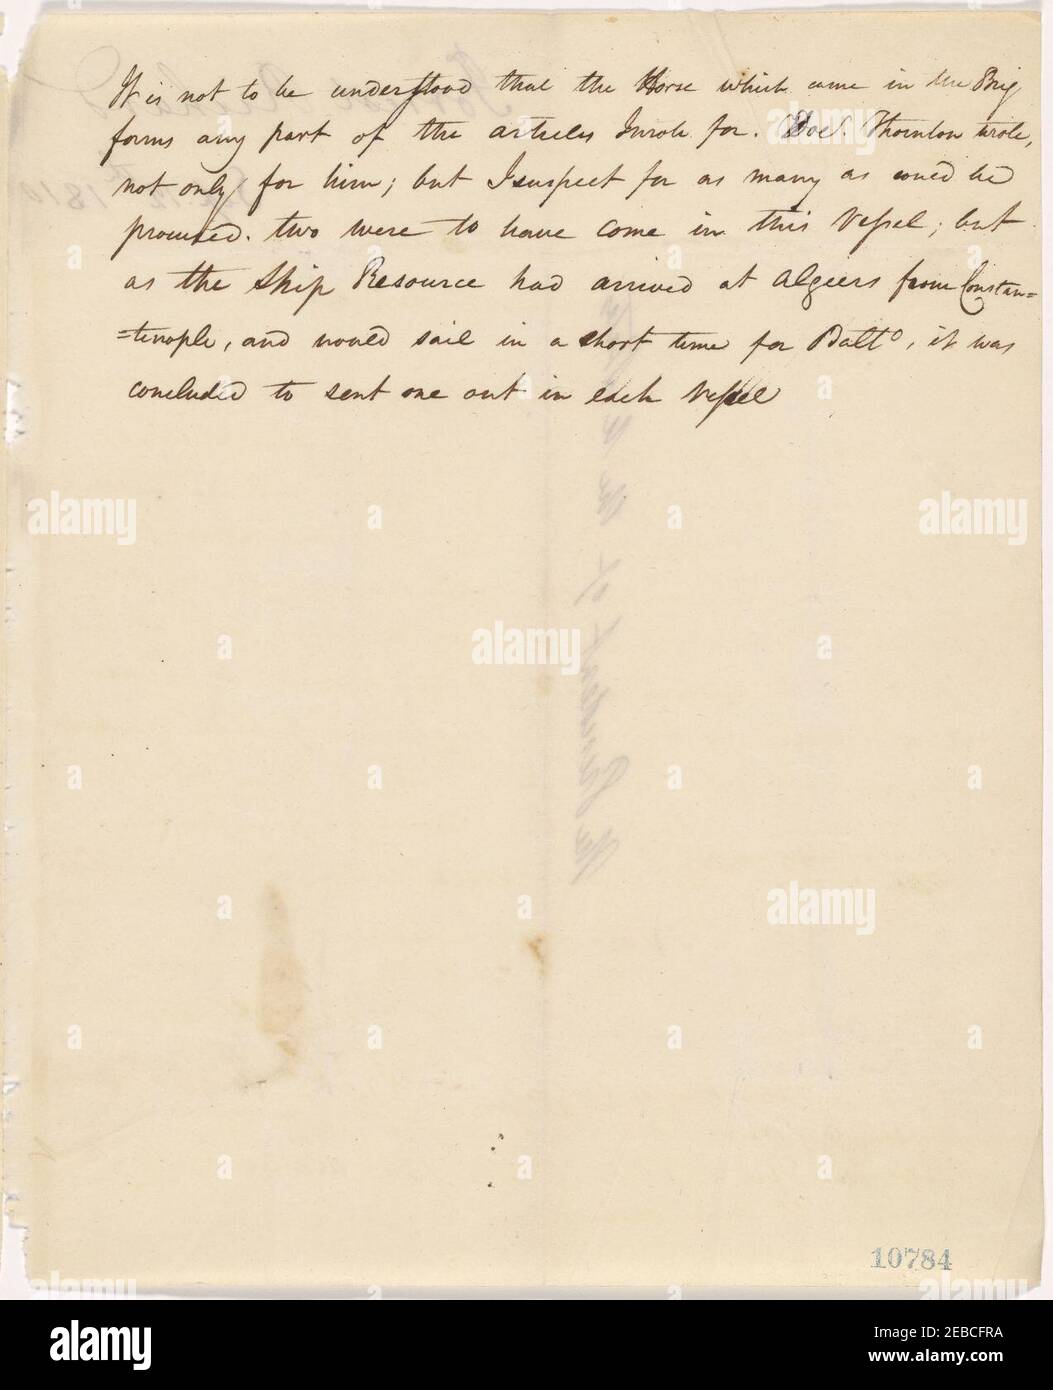 It is not to be understood that the Horse which came in the Brig
forms any part of the articles I wrote for. Doct. Thornton wrote,
not only for him; but I suspect for as many as could be
procured. two were to have come in this Vessel; but
as the Ship Resource had arrived at Algiers from Constan=
=tinople, and would sail in a short time for Balto, it was
concluded to sent one out in each Vessel
The President of the
10784
alamy
a
alamy
Image ID: 2EBCFRA
www.alamy.com